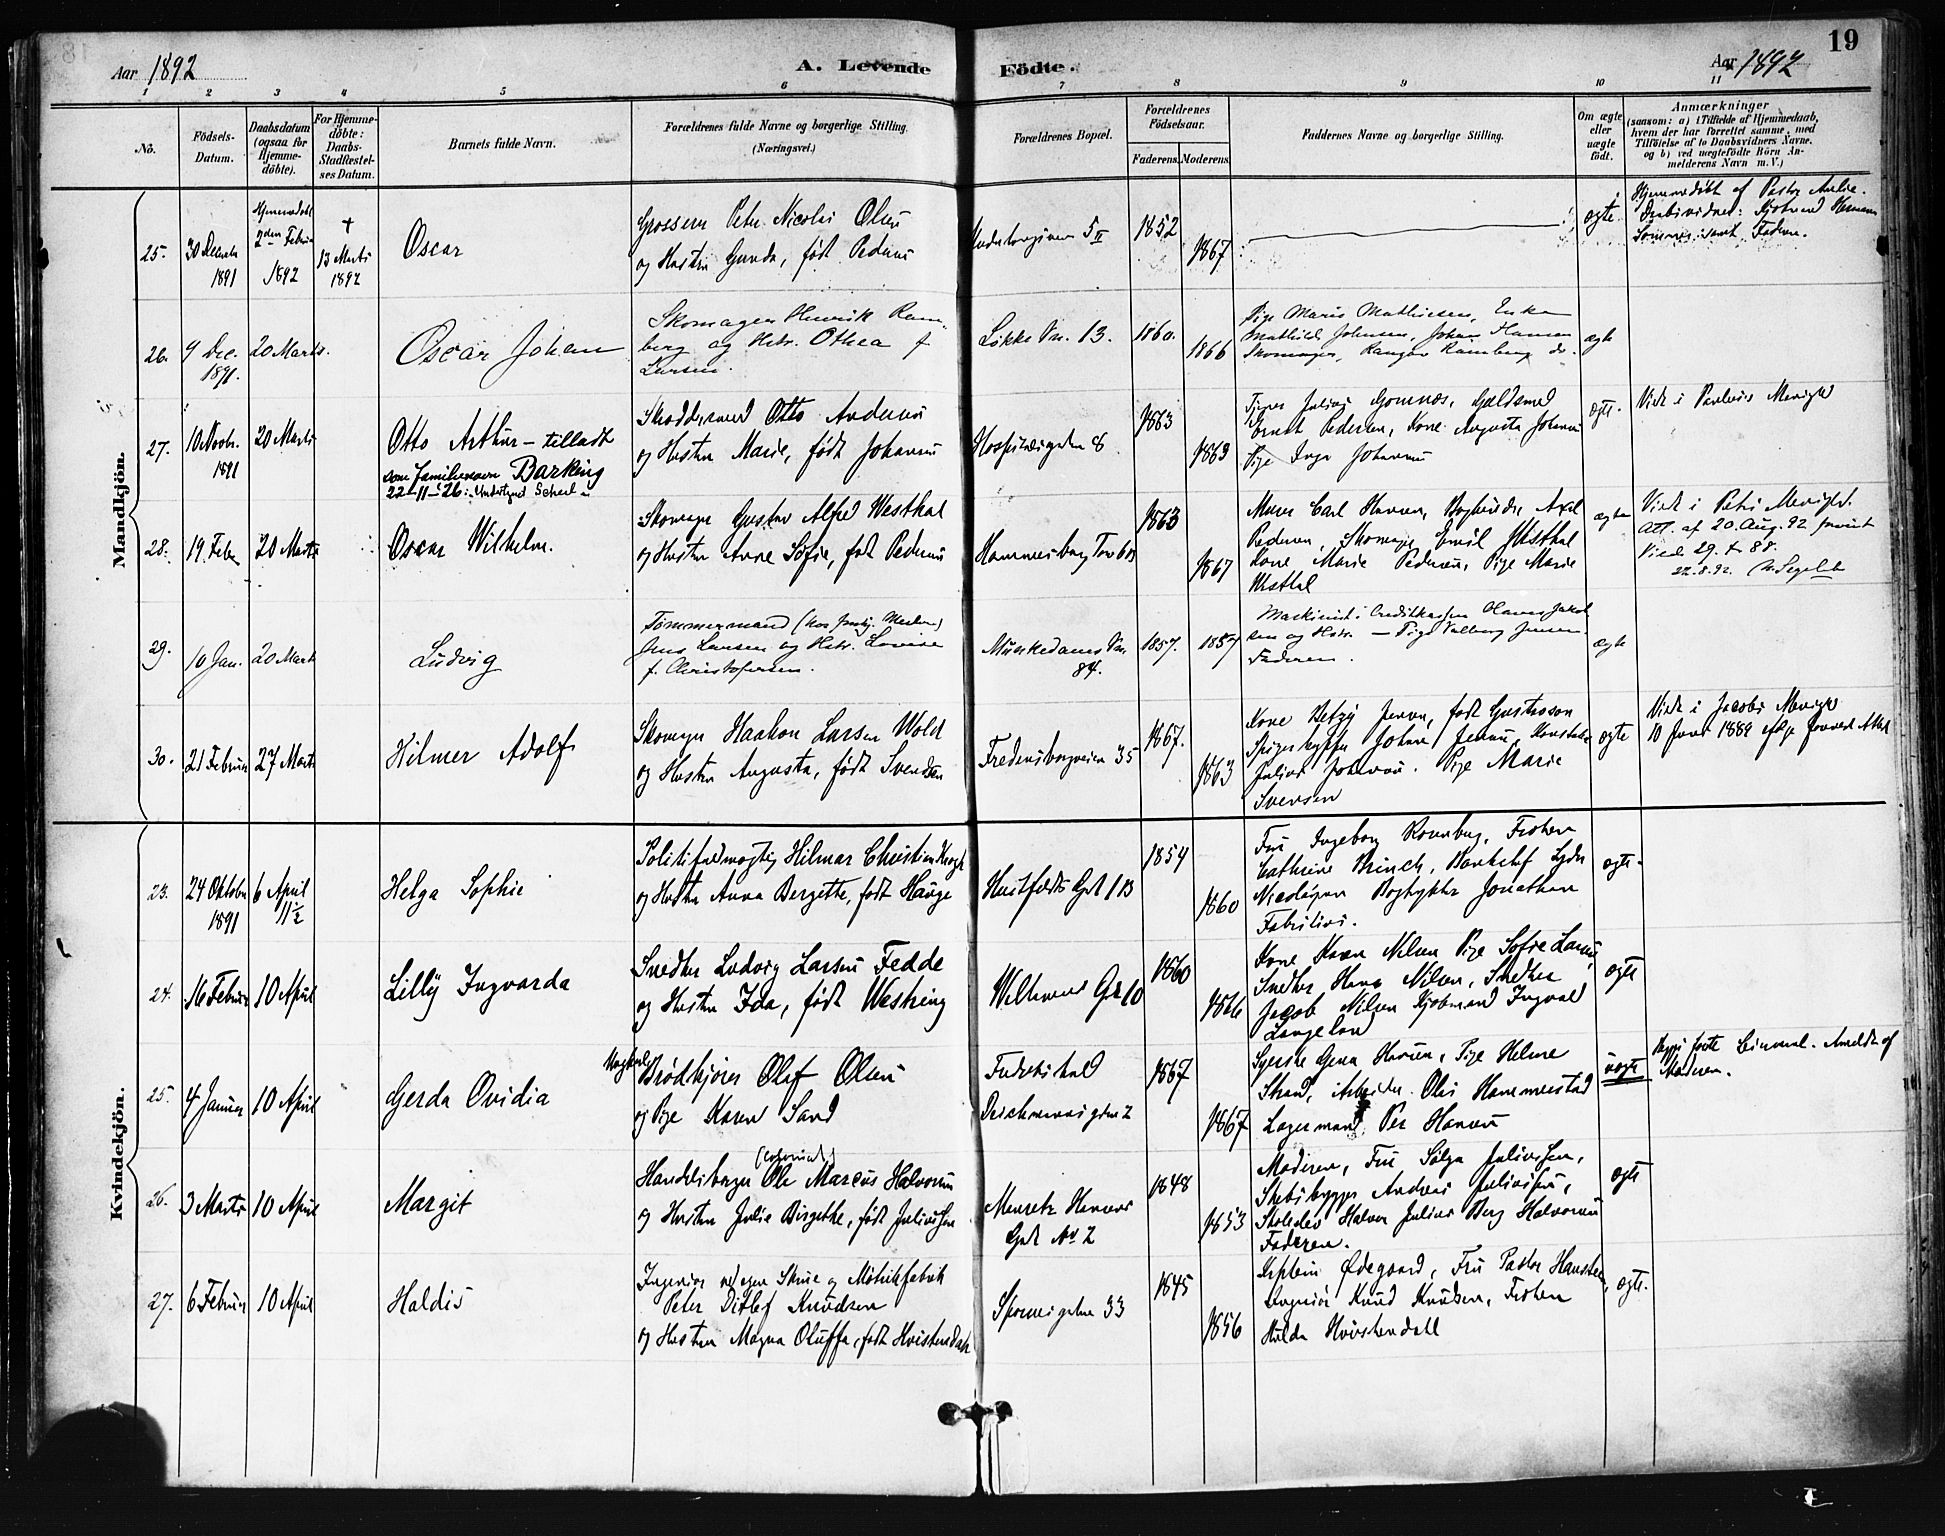 19
Aar 1892
A. Levende
Födte.
Aar 1892
1 2 3 4 5 6 7 8 9 10 11
No.
Födsels-
Datum.
Daabsdatum
(ogsaa for
Hjemme-
döbte).
For Hjemme-
döbte:
Daabs-
Stadfæstel-
ses Datum.
Barnets fulde Navn.
Forældrenes fulde Navne og borgerlige Stilling.
(Næringsvei.)
Forældrenes Bopæl.
Forældrenes
Födselsaar.
Faderens. Moderens.
Faddernes Navne og borgerlige Stilling.
Om ægte
eller
uægte
født.
Anmærkninger
(saasom: a) i Tilfælde af Hjemmedaab,
hvem der har forrettet samme, med
Tilføielse af to Daabsvidners Navne,
og b) ved uægtefödte Börn An-
melderens Navn m. V.)
Mandkjön.
25.
1891
Hjemmedøbt
2den
1892
13 Marts
1892
Oscar
Peter Nicolai Olsen
og Hustru Gunda, født
5 II
1852
1867
ægte.
Hjemmedøbt af Pastor
samt Faderen.
26.
9 Dec.
1891.
20 Marts.
Oscar Johan
Skomager Henrik Ram-
berg og Hstr. Othea f
Larsen.
Løkke Vn. 13.
1860.
1866
Pige Maren Mathiesen, Enke
Mathilde Johnsen, Johan Hansen
Skomager, Ramberg do.
ægte
27.
10 Novbr.
1891
20 Marts
Otto Arthur - tilladt
som familienavn Barking
22-11-26:
Skræddersvend Otto Andersen
og Hustru Marie, født Johansen
Hospitalsgaden 8
1863
1863
Gomnæs, Guldsmed
Ernst Pedersen, Kone Augusta Johansen
Pige Inga Johansen
ægte.
Viet i Paulus Menighed
28.
19 Febr
20 Marts
Oscar Wilhelm.
Skomager Gustav Alfred Westhal
og Hustru Anne Sofie, født Pedersen
Hammersborg Torv 6
1863
1867
Murer Carl Hansen, Axel
Pedersen, Skomager Emil Westhal
Kone Marie Pedersen, Pige Marie
Westhal
ægte
Viet i Petri Menighed.
Att. af 20. Aug. 92
22.8.92.
29.
10 Jan.
20 Marts
Ludvig
Tømmermand
Jens Larsen og Hstr. Lovise
f. Christofersen.
Munkedams Vn.
84.
1857.
1857
Maskinist i Creditkassen Jakob
sen og Hstr. — Pige Valborg Jensen.
Faderen.
ægte
30.
21 Februar
27 Marts
Hilmer Adolf
Skomager Haakon Larsen Wold
og Hustru Augusta, født Svendsen
Fredensborgveien 35
1867.
1863
Kone Betzy Jensen, født Gustavson
Johan Jensen,
Julius Johansen. Pige Marie
Svensen
ægte
Viet i Jacobs Menighed
10 1889
Kvindekjön.
23.
24 Oktober
1891
6 April
11½
Helga Sophie
Politifuldmægtig Hilmar Christian Krogh
og Hustru Anna Bergette, født Hauge
Huitfeldts Gd 1 B
1854
1860
Fru Ingeborg Frøken
Cathrine Brinch,
Nicolaysen Bogtrykker Jonathan
Fabritius.
ægte.
24.
16 Februar
10 April
Lilly Ingvarda
Snedker Ludvig Larsen Fedde
og Hustru Ida, født Westring
Wilhelms Gd 10
1860
1866
Kone Karen Nilsen Pige Sofie Larsen,
Snedker Hans Nilsen, Snedker
Jacob Nilsen Kjøbmand Ingvald
Langeland
ægte
25.
4 Januar
10 April
Gerda Ovidia
Ungkarl
Brødkjører Olaf Olsen
og Pige Karen Sand
Fredrikshald
Deichmansgaden 2
1867
1867
Syerske Gina Hansen, Pige Helene
Strand, Arbeider Ole Hammerstad
Lagermand Per Hansen
uægte
Anmeldt af
Moderen.
26.
3 Marts
10 April
Margit
Ole Marcus Halvorsen
og Hustru Julie Birgethe, født Juliussen
Meurets Hansens
Gade No 2
1848
1853
Moderen, Fru Solga Juliussen,
Skibsbygger Andreas Juliussen,
Halvor Julius Berg Halvorsen
Faderen.
ægte
27.
6 Februar
10 April
Haldis
Ingeniør ved egen Skrue og Møtrikfabrik
Peter Ditlef Knudsen
og Hustru Magna Oluffa, født Hvistendahl
33
1845
1856
Kaptein Ødegaard, Fru Pastor Hansteen,
Ingeniør Knud Knudsen, Frøken
Hulda Hvistendahl
ægte.